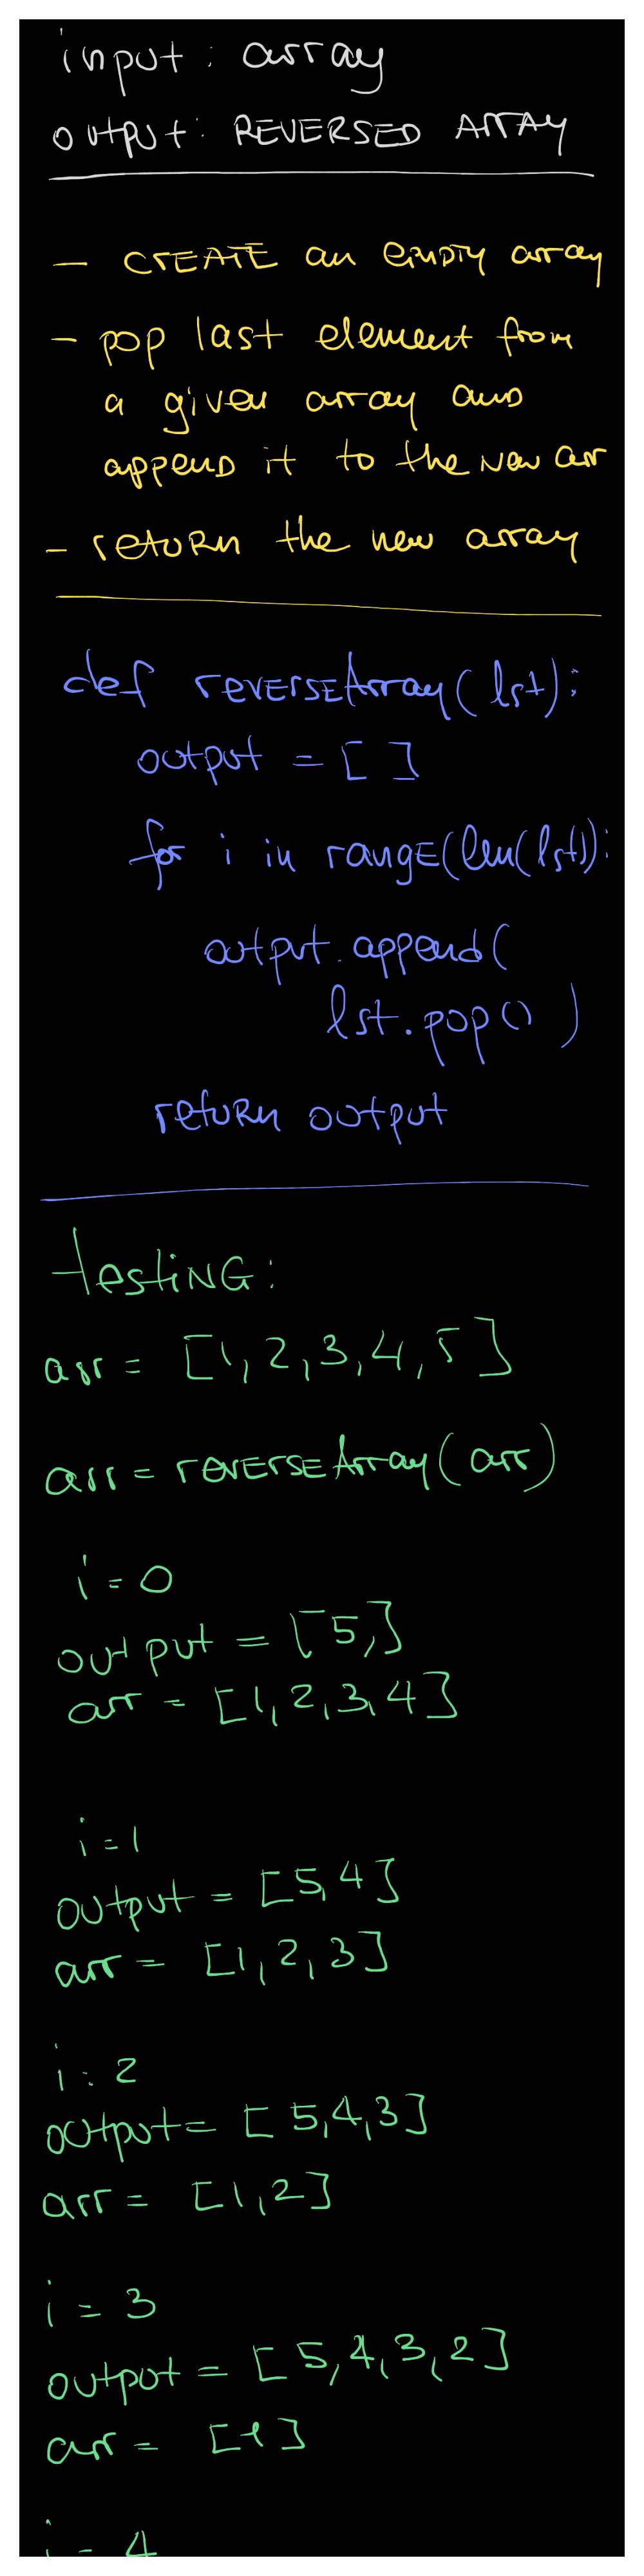 input: array
output: REVERSED ARRAY
- CREATE an EMPTY array
- pop last element from
a given array AND
appEND it to the NEW arr
- retURN the new array
def reVERSEArray(lst):
output = []
for i in rangE(len(lst)):
output.append(
lst.pop())
retURN output
testiNG:
arr = [1,2,3,4,5]
arr = reVERSEArray(arr)
i = 0
output = [5,]
arr = [1,2,3,4]
i = 1
output = [5,4]
arr = [1,2,3]
i: 2
output = [5,4,3]
arr = [1,2]
i = 3
output = [5,4,3,2]
arr = [1]
i - 4